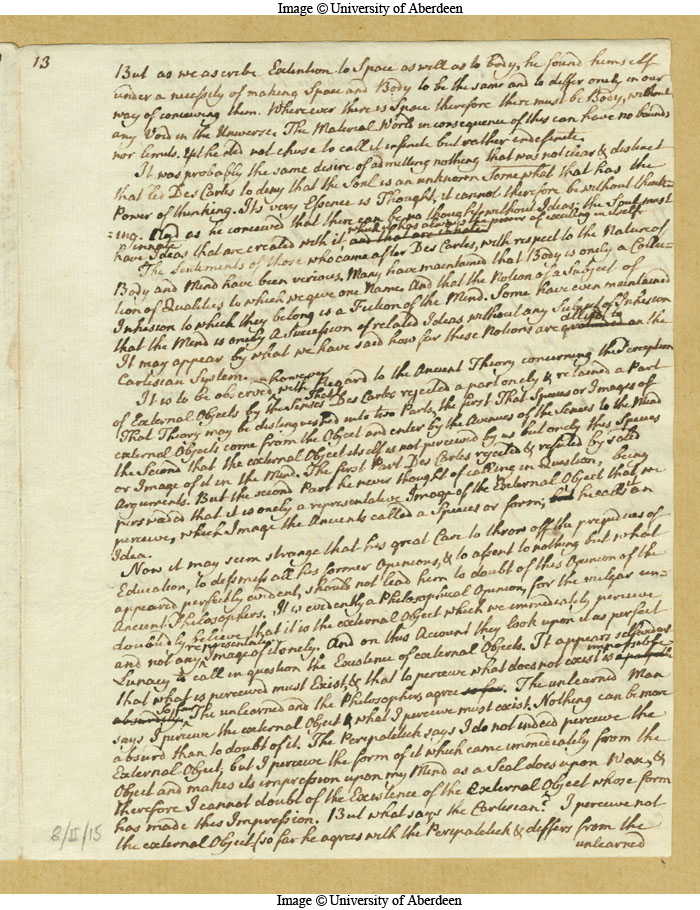 Image © University of Aberdeen
13
But as we ascribe Extention to Space as well as to body, he found himself
under a necessity of making Space and Body to be the same and to differ onely in our
way of conceiving them. Wherever there is Space therefore there must be Body, without
any Void in the Universe. The Material World in consequence of this can have no bounds
nor limits. Yet he did not chuse to call it infinite but rather indefinite.
It was probably the same desire of admitting nothing that was not clear & distinct
that led Des Cartes to deny that the Soul is an unknown Somewhat that has the
Power of thinking. Its very Essence is Thought, it cannot therefore be without think
=ing. And as he conceived that there can be no thought without Ideas; the Soul must
which it has always the power of exciting in itself
have innate Ideas that are created with it, and that are
The Sentiments of those who came after Des Cartes, with respect to the Nature of
Body and Mind have been various. Many have maintained that Body is onely a Collec-
tion of Qualities to which we give one Name. And that the Notion of a Subject of
Inhesion to which they belong is a Fiction of the Mind. Some have even maintained
that the Mind is onely a Succession of related Ideas without any Subject of Inhesion
It may appear by what we have said how far these Notions are on the
Cartesian System.
however
It is to be observed with Regard to the Ancient Theory concerning the Perception
of External Objects by the Senses that Des Cartes rejected a part onely & retained a Part
That Theory may be distinguished into two Parts, the first That Species or Images of
external Objects come from the Object and enter by the Avenues of the Senses to the Mind
the Second that the external Object itself is not perceived by us but onely this Species
or Image of it in the Mind. The first Part Des Cartes rejected & refuted by solid
Arguments. But the second Part he never thought of calling in Question, being
perswaded that it is onely a representative Image of the External Object that we
perceive, which Image the Ancients called a Species or form; he calls it an
Idea.
Now it may seem strange that his great Care to throw off the prejudices of
Education, to dismiss all his former Opinions, & to assent to nothing but what
appeared perfectly evident, should not lead him to doubt of this Opinion of the
Ancient Philosophers. It is evidently a Philosophical Opinion, for the vulgar un-
doubtedly believe that it is the external Object which we immediately perceive
and not any representative Image of it onely. And on this Account they look upon it as perfect
Lunacy to call in question the Existence of external Objects. It appears selfevident
impossible
that what is perceived must Exist, & that to perceive what does not exist is
So far The unlearned and the Philosophers agree. The unlearned Man
says I perceive the external Object & what I perceive must exist. Nothing can be more
absurd than to doubt of it. The Peripatetick says I do not indeed perceive the
External Object, but I perceive the form of it which came immediately from the
Object and makes its impression upon my Mind as a Seal does upon Wax, &
therefore I cannot doubt of the Existence of the External Object whose form
has made this Impression. But what says the Cartesian? I perceive not
the external Object (so far he agrees with the Peripatetick & differs from the
unlearned
8/II/15
Image © University of Aberdeen